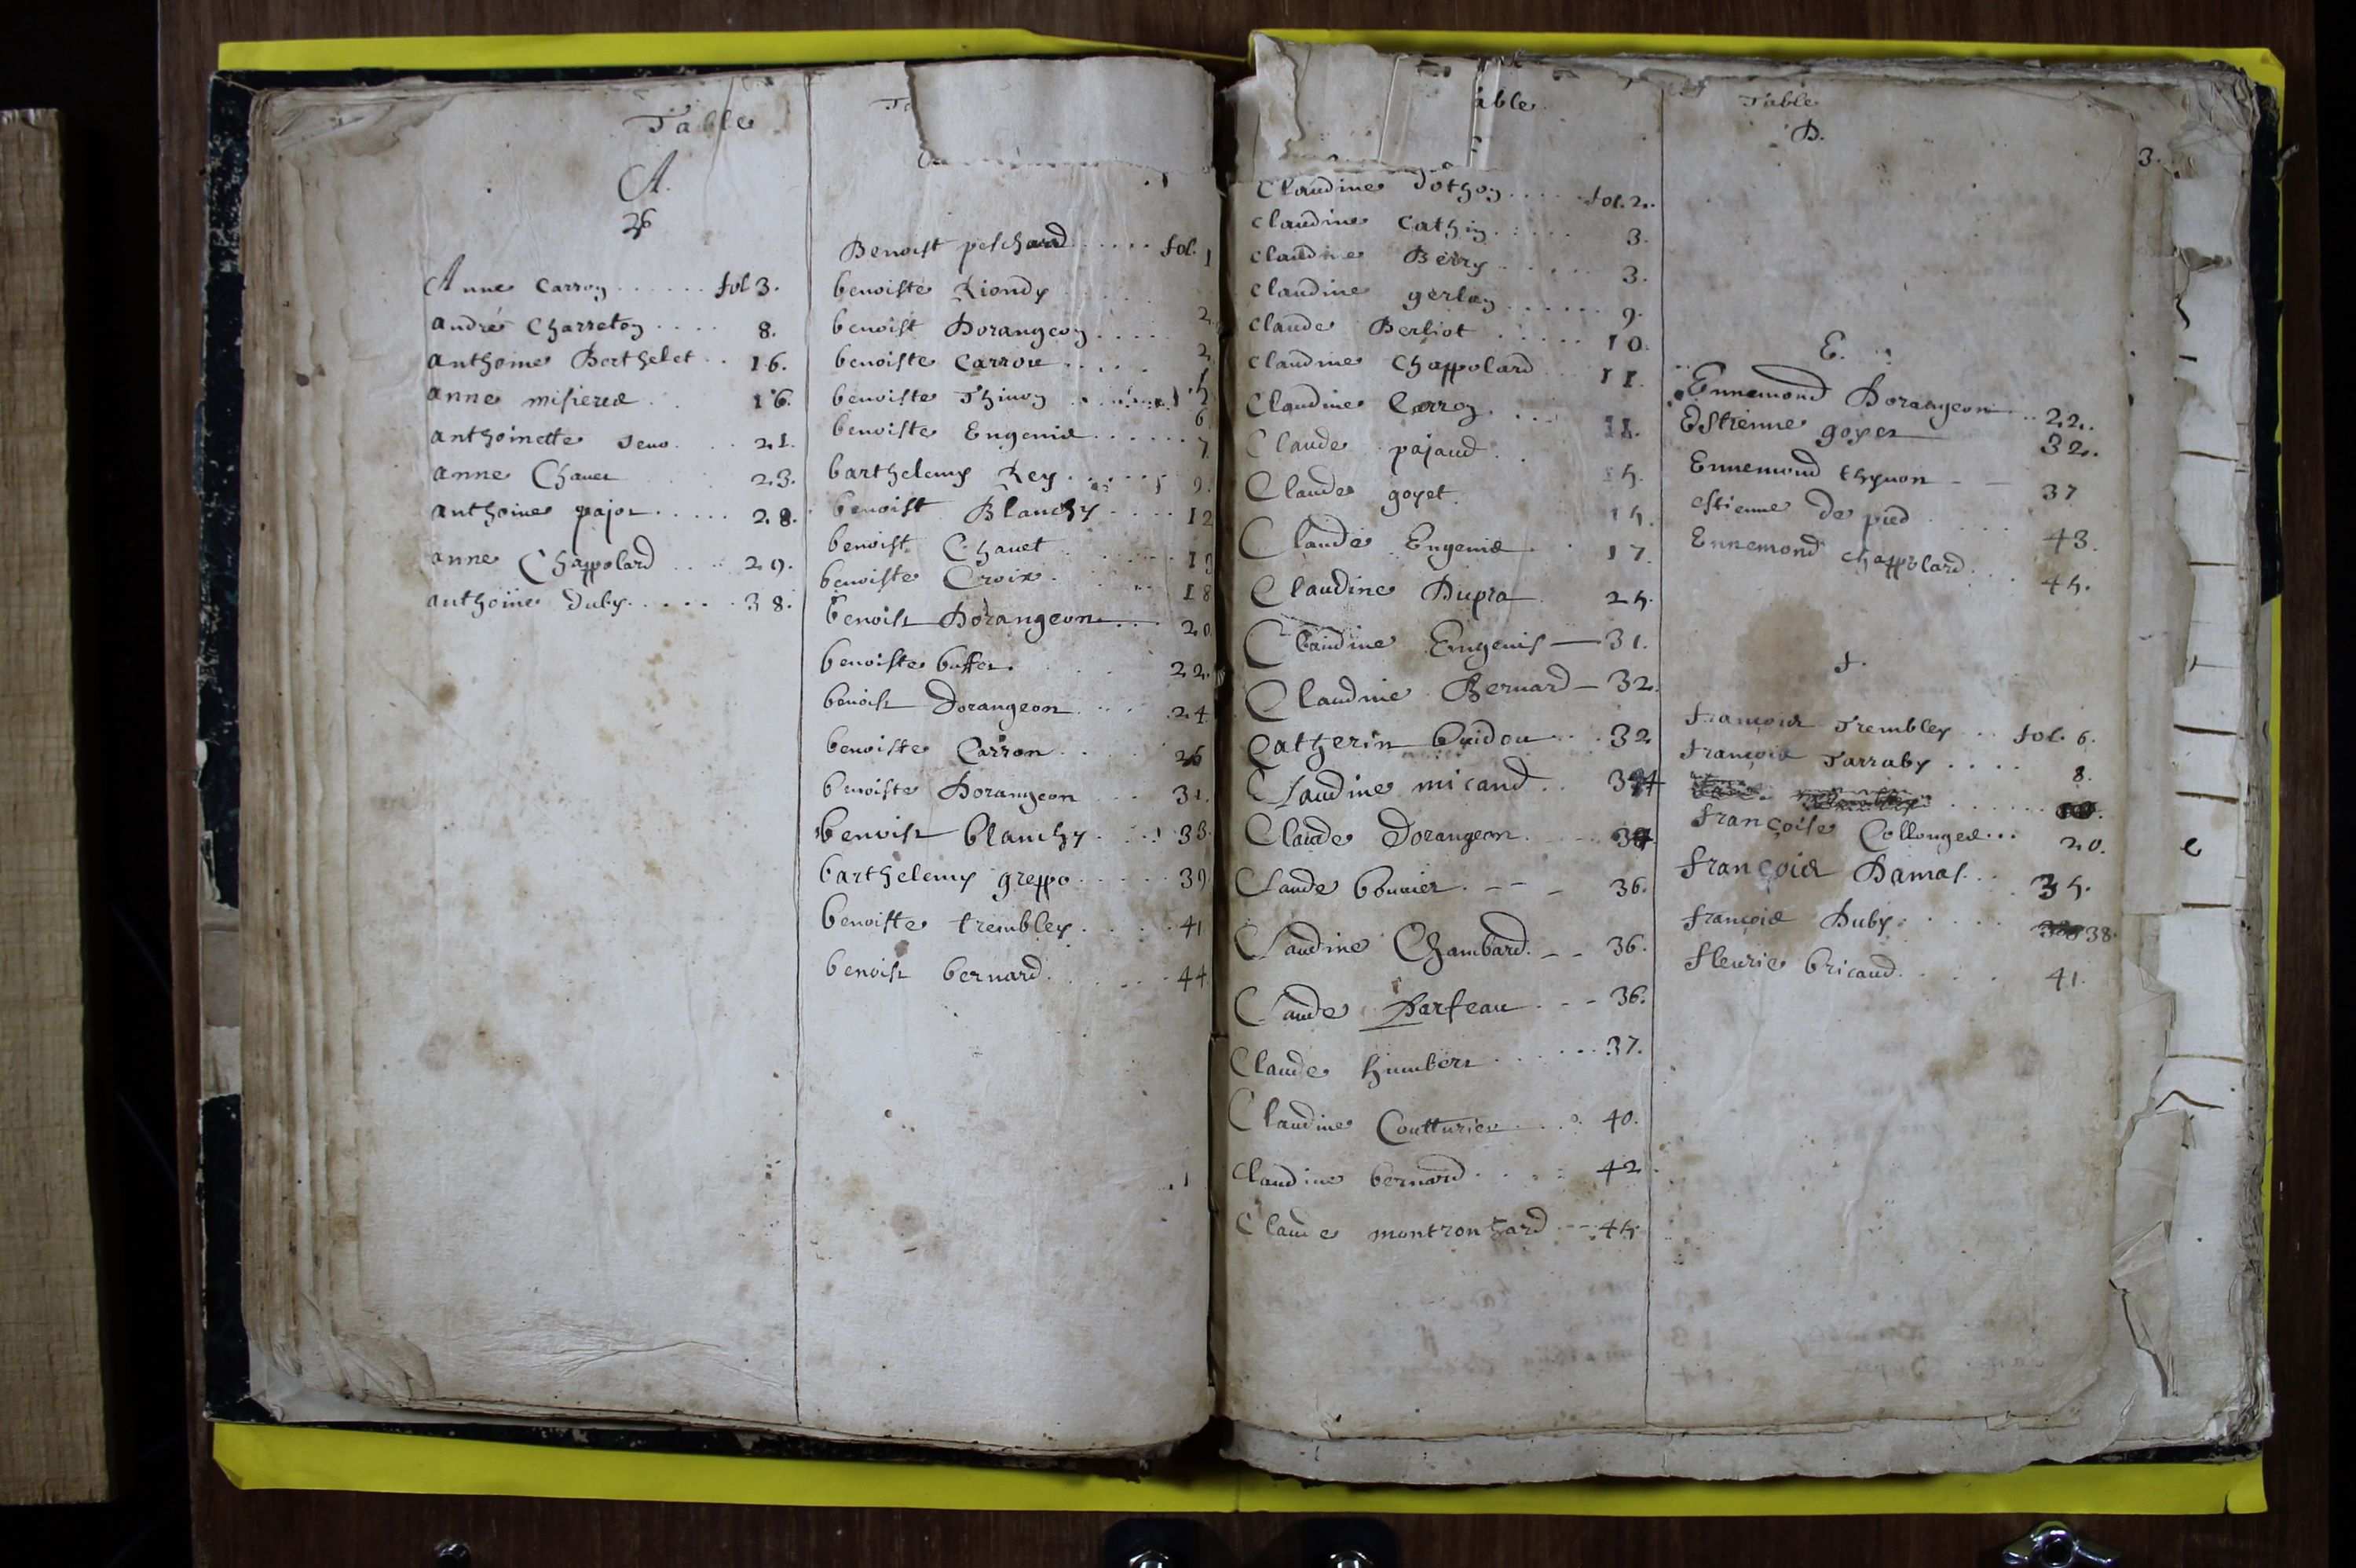 Table
A.
26
Anne Carron ...... fol 3.
andré Charreton .... 8.
anthoine Berthelet .. 16.
anne misieres . . 16.
anthoinette . . 21.
anne Chauet 23.
anthoine pajot ..... 28.
anne Chappolard .... 29.
anthoine duby ..... 38.
Benoist peschard ..... fol. 1
benoiste Riondy .... 2
benoist Dorangeon ..... 2
benoiste Carron ..... 5
benoiste Thinon ..... 6
benoiste Eugenis ...... 7
barthelemy Rey ..... 9.
benoist Blanchy .... 12
benoist Chauet
benoiste Croix . 18
benoist Dorangeon .. 20
benoiste buffet . 22.
benoist Dorangeon .... 24
benoiste Carron ..
benoiste Dorangeon ... 31.
benoist blanchy .... 33.
barthelemy greppo ..... 39
benoiste trembley .... 41
benoist bernard ..... 44
able
Claudine ..... fol. 2.
Claudine Cathin ..... 3.
Claudine Berry ..... 3.
Claudine gerlan ...... 9.
Claude Berliot ..... 10.
Claudine Chappolard ... 11.
Claudine Carron ....
Claude pajaud . . 15.
Claude goyet . 15.
Claude Eugenis . 17.
Claudine Dupra 25.
Claudine Eugenis — 31.
Claudine Bernard — 32.
Catherin buidon .. 32
Claudine micaud .. 34
Claude Dorangeon . 34
Claude bonnier . – – – 36.
Claudine Chambard . – – 36.
Claude Parfeau . – – 36.
Claude humbert ...... 37.
Claudine Coutturier .... 40.
Claudine bernard ..... 42.
Claude montronhard – – 45.
Table
D.
3.
E.
Ennemond Dorangeon .. 22.
Estienne goyet 32.
Ennemond thynon – – 37
estienne de pied .... 43.
Ennemond chappolard ... 45.
f.
françois Trembley .. fol. 6.
françois Tarraby .... 8.
françoise Collonges ... 20.
françois Damas .. 35.
françois Duby ..... 38.
fleurie bricaud .... 41.